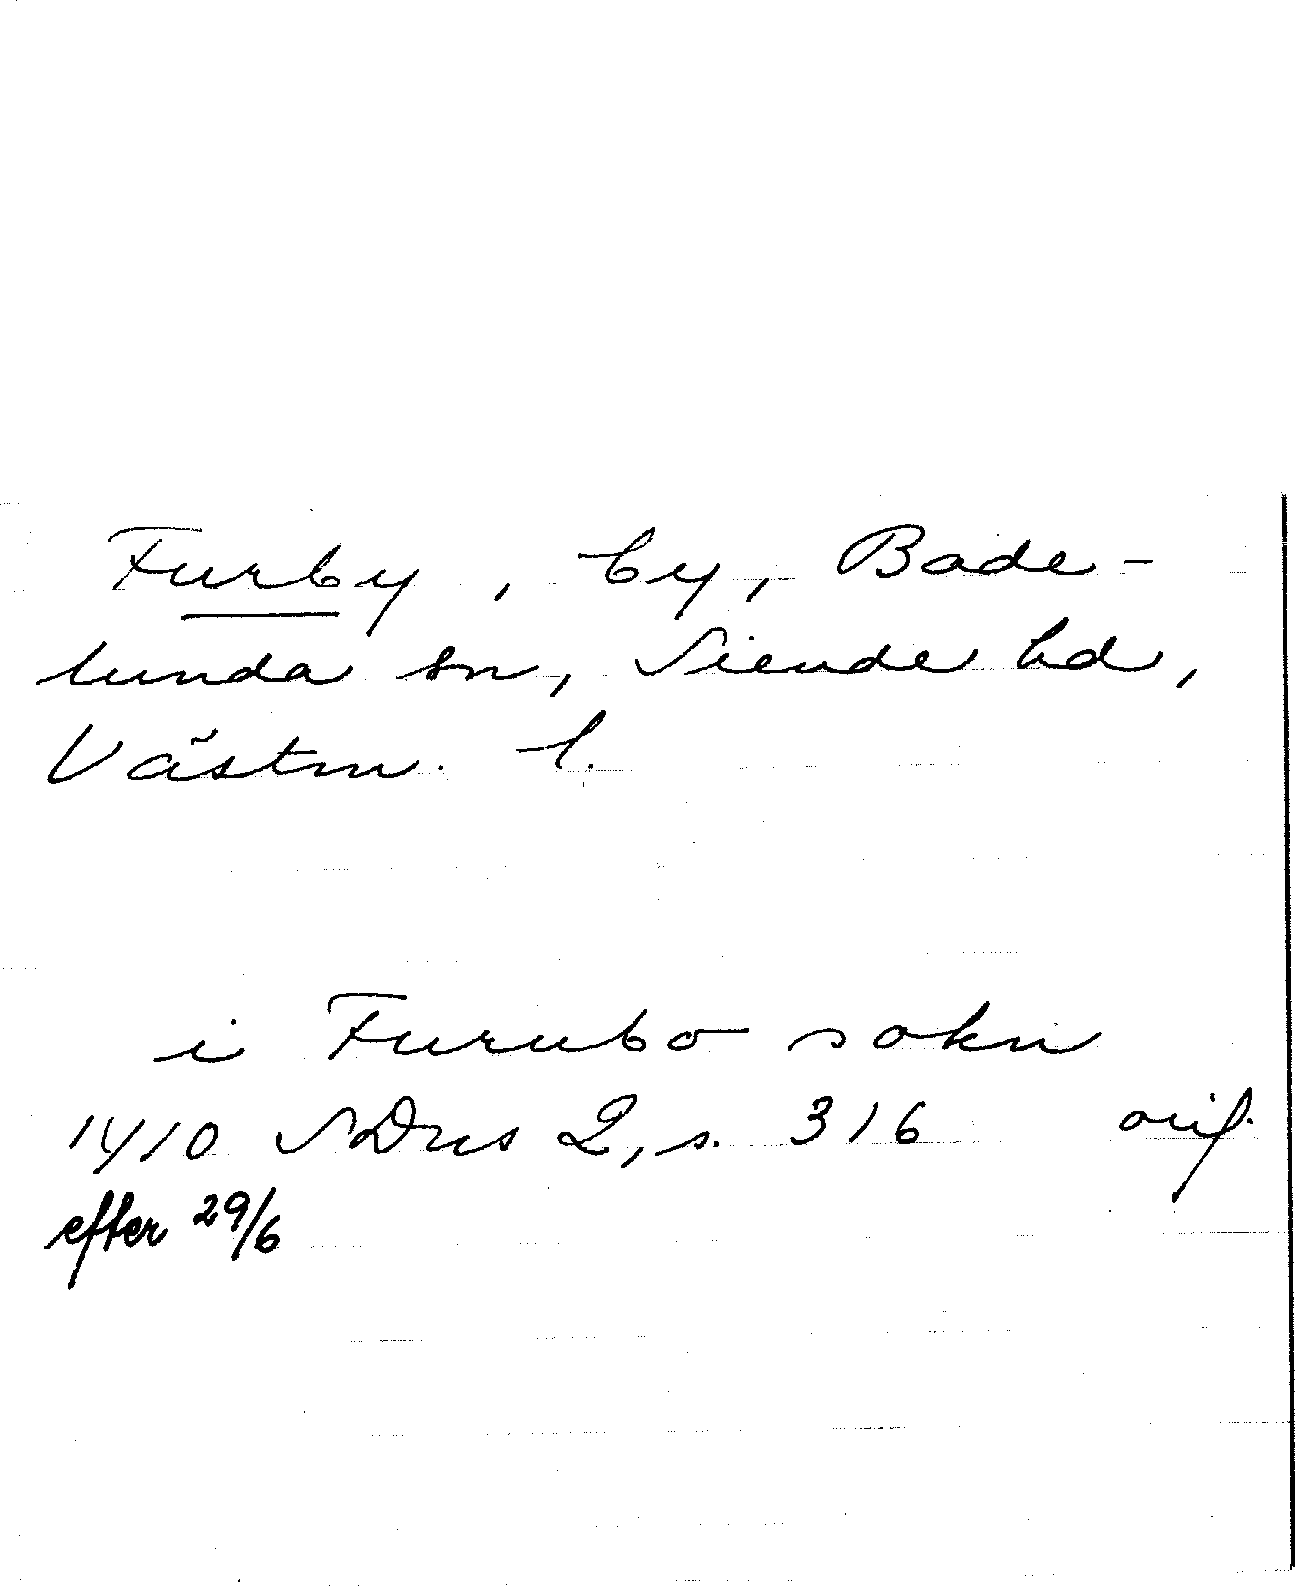 Furby, by, Bade-
lunda sn, Siende hd,
Västm. l.
i Furubo sokn
1410 SDns 2, s. 316 orig.
efter 29/6